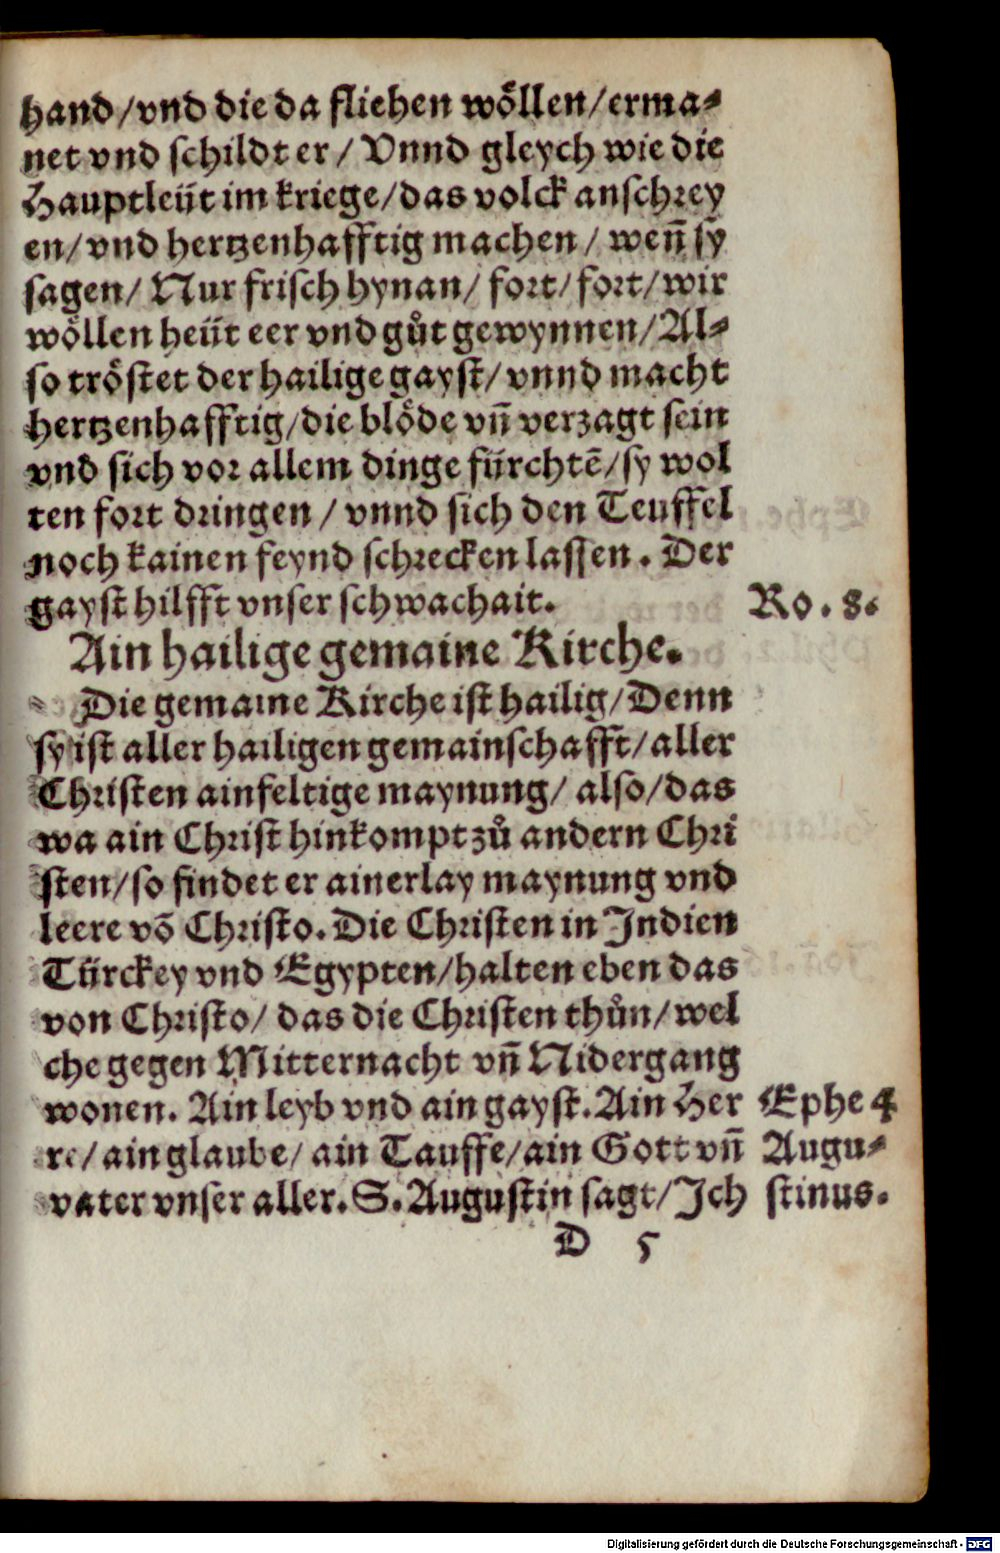 hand/vnd die da fliehen wöllen/erma⸗
net vnd schildt er/ Vnnd gleych wie die
Hauptleüt im kriege/das volck anschrey
en/vnd hertzenhafftig machen/ weñ sy
sagen/ Nur frisch hynan/ fort/fort/wir
wöllen heüt eer vnd gůt gewynnen/Al⸗
so tröstet der hailige gayst/vnnd macht
hertzenhafftig/die blöde vñ verzagt sein
vnd sich vor allem dinge fürchtē/sy wol
ten fort dringen/vnnd sich den Teuffel
noch kainen feynd schrecken lassen. Der
gayst hilfft vnser schwachait. Ro. 8.
Ain hailige gemaine Kirche.
Die gemaine Kirche ist hailig/Denn
sy ist aller hailigen gemainschafft/aller
Christen ainfeltige maynung/ also/das
wa ain Christ hinkompt zů andern Chri
sten/so findet er ainerlay maynung vnd
leere vō Christo. Die Christen in Indien
Türckey vnd Egypten/halten eben das
von Christo/ das die Christen thůn/wel
che gegen Mitternacht vñ Nidergang
wonen. Ain leyb vnd ain gayst. Ain Her Ephe 4
re/ain glaube/ ain Tauffe/ain Gott vñ Augu⸗
vater vnser aller. S. Augustin sagt/Ich stinus.
D 5
Digitalisierung gefördert durch die Deutsche Forschungsgemeinschaft - DFG